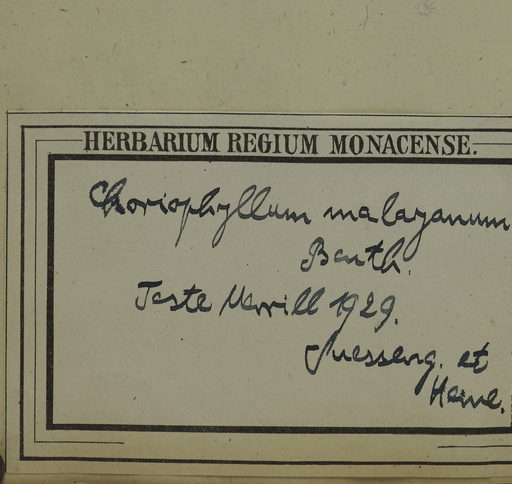 HERBARIUM REGIUM MONACENSE.
Choriophyllum malayanum
Benth.
Teste Merrill 1929.
Suesseng. et
Heine.